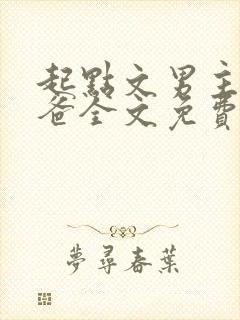 起點文男主
爸全文免費
夢尋春葉